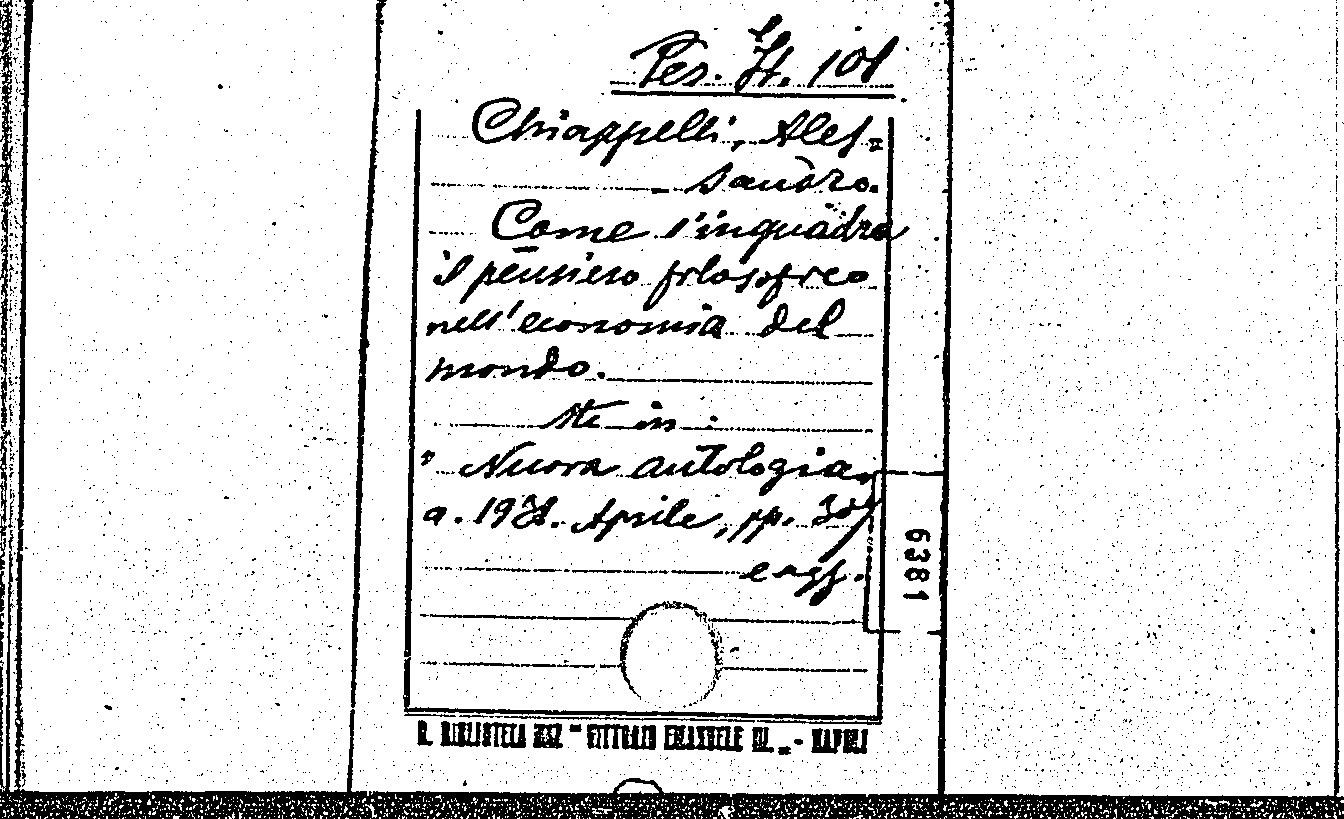 Per. It. 101
Chiappelli, Ales=
sandro.
Come s'inquadra
il pensiero filosofico
nell'economia del
mondo.
Sta in:
" Nuova antologia,
a. Aprile, pp.
e sgg.
6381
R. BIBLIOTECA NAZ " VITTORIO EMANUELE III. " - NAPOLI